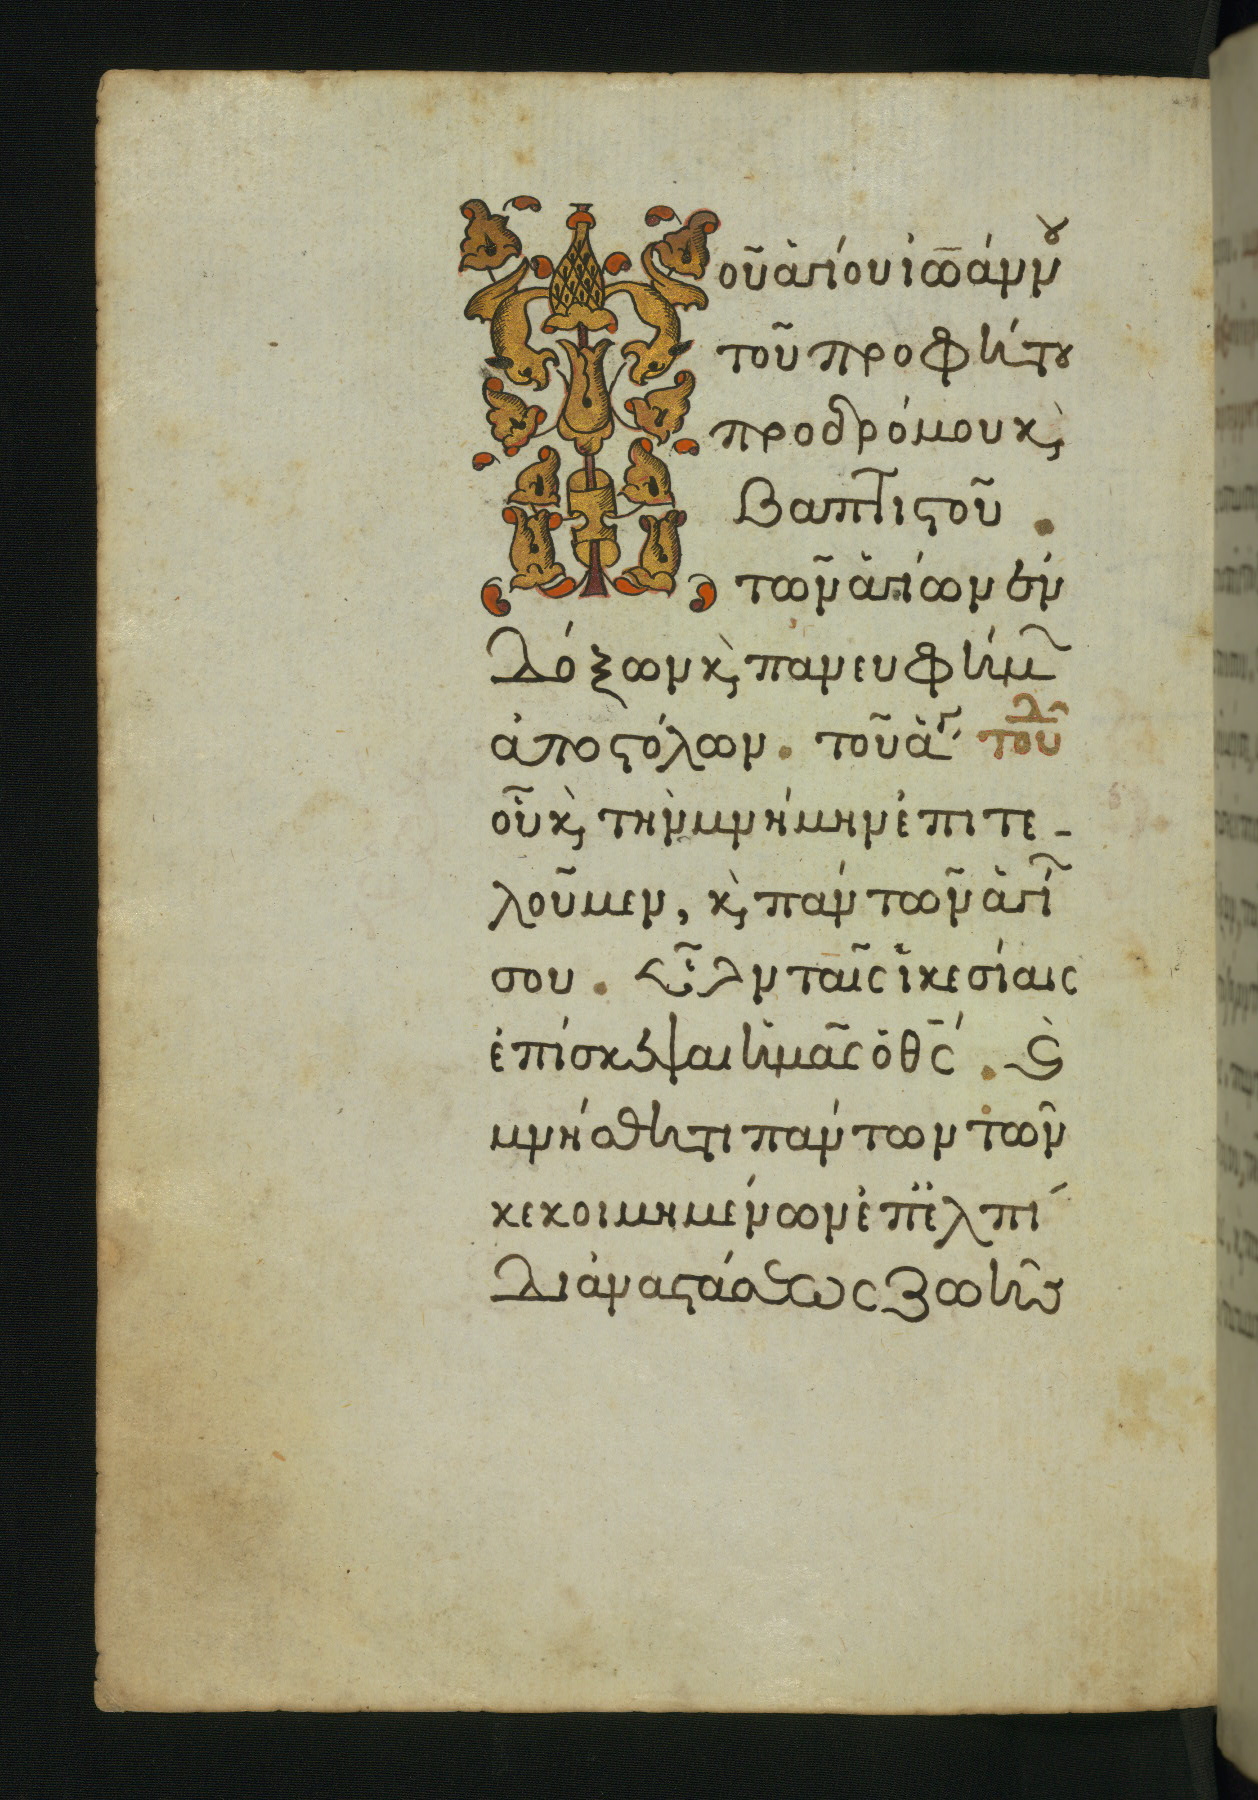 Τοῦ ἁγίου ἰω̅άννου
τοῦ προφήτου
προδρόμου κ̀
βαπτιστοῦ.
τῶν ἁγίων ἐν
δόξων κ̀ πανευφήμ
ἀποστόλων. τοῦ ἁγ τοῦδε
οὗ κ̀ τὴν μνήμην ἐπιτε-
λοῦμεν, κ̀ πάντων τῶν ἁγί
σου. ὧν ταῖς ἱκεσίαις
ἐπίσκεψαι ἡμᾶς ὁ θς̅. καὶ
μνήσθητι πάντων τῶν
κεκοιμημένων ἐπ' ἐλπί
δι ἀναστάσεως ζωῆς